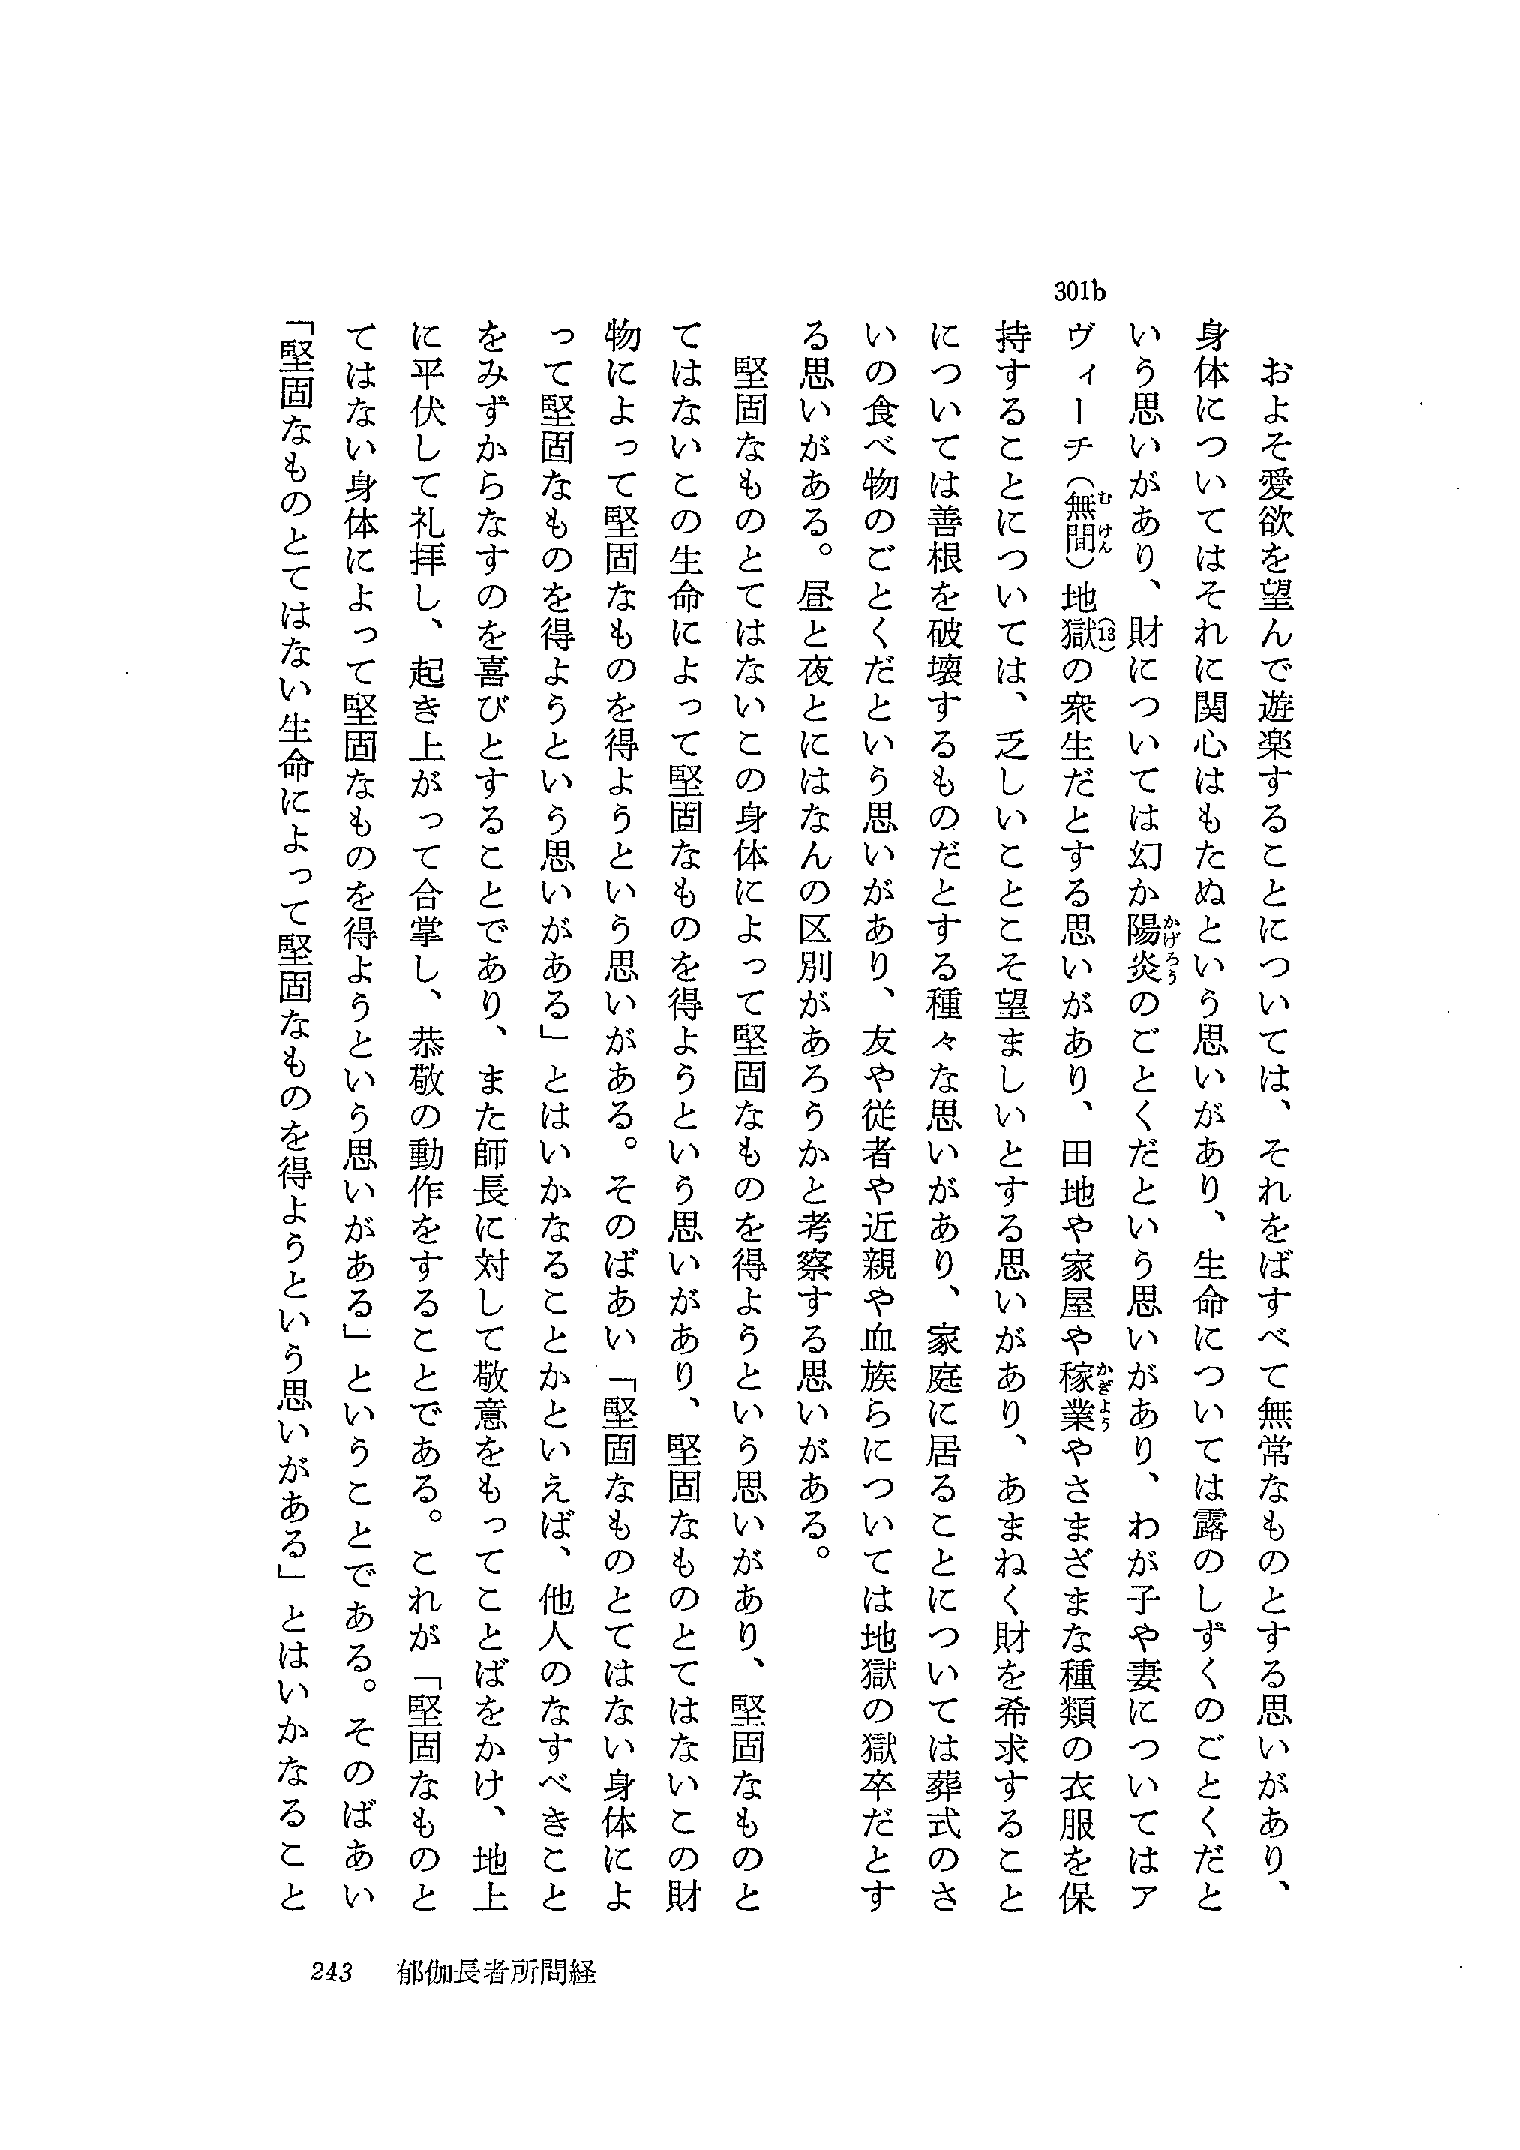 301b
　およそ愛欲を望んで遊楽することについては、それをばすべて無常なものとする思いがあり、
身体についてはそれに関心はもたぬという思いがあり、生命については露のしずくのごとくだと
いう思いがあり、財については幻か陽炎（かげろう）のごとくだという思いがあり、わが子や妻についてはア
ヴィーチ（無間（むけん））地獄（13）の衆生だとする思いがあり、田地や家屋や稼業（かぎょう）やさまざまな種類の衣服を保
持することについては、乏しいことこそ望ましいとする思いがあり、あまねく財を希求すること
については善根を破壊するものだとする種々な思いがあり、家庭に居ることについては葬式のさ
いの食べ物のごとくだという思いがあり、友や従者や近親や血族らについては地獄の獄卒だとす
る思いがある。昼と夜とにはなんの区別があろうかと考察する思いがある。
　堅固なものとてはないこの身体によって堅固なものを得ようという思いがあり、堅固なものと
てはないこの生命によって堅固なものを得ようという思いがあり、堅固なものとてはないこの財
物によって堅固なものを得ようという思いがある。そのばあい「堅固なものとてはない身体によ
って堅固なものを得ようという思いがある」とはいかなることかといえば、他人のなすべきこと
をみずからなすのを喜びとすることであり、また師長に対して敬意をもってことばをかけ、地上
に平伏して礼拝し、起き上がって合掌し、恭敬の動作をすることである。これが「堅固なものと
てはない身体によって堅固なものを得ようという思いがある」ということである。そのばあい
「堅固なものとてはない生命によって堅固なものを得ようという思いがある」とはいかなること
243　郁伽長者所問経